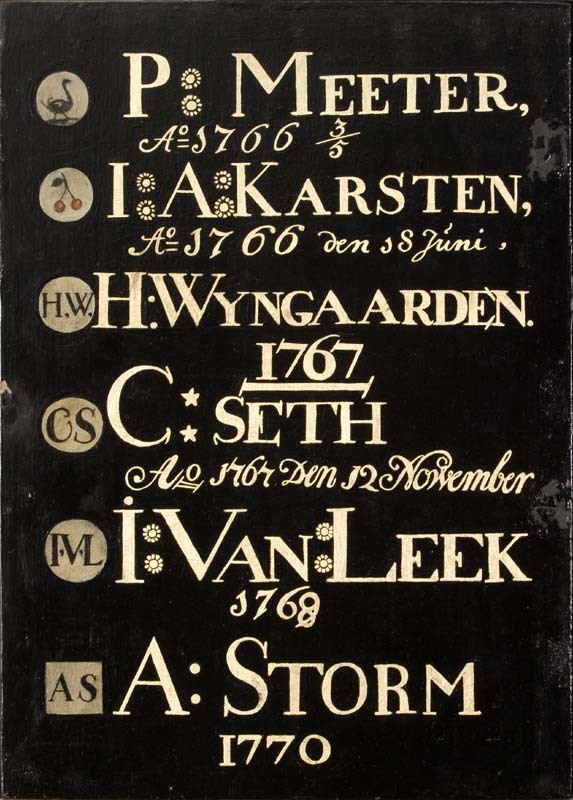 P: MEETER,
Ao 1766 3/5
I: A: KARSTEN,
Ao 1766 den 18 Juni,
H,W, H: WYNGAARDEN.
1767
CS C: SETH
Ao 1767 Den 12 November
I.V.L I: VAN: LEEK
1768
AS A: STORM
1770